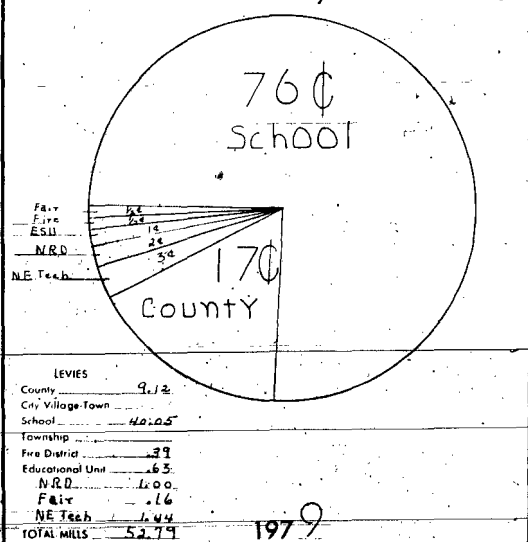 76¢
School
Fair ½¢
Fire ½¢
ESU 1¢
NRD 2¢
NE Tech 3¢
17¢
County
LEVIES
County 9.12
City Village-Town
School 40.05
Township
Fire District .39
Educational Unit .63
NRD 1.00
Fair .16
NE Tech 1.44
TOTAL MILLS 52.79
1979